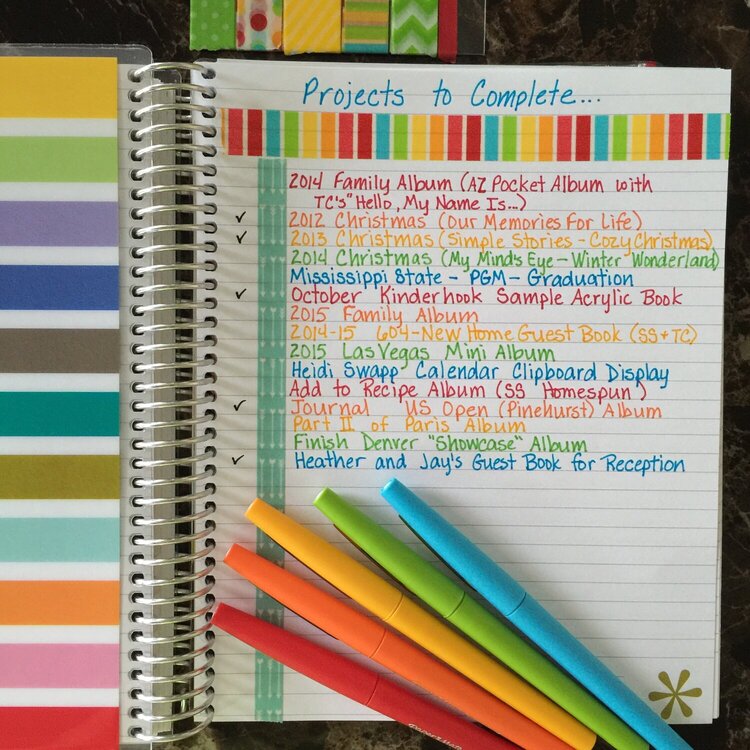 Projects to Complete...
2014 Family Album (AZ Pocket Album with
TC's "Hello, My Name Is...)
✓ 2012 Christmas (Our Memories For Life)
✓ 2013 Christmas (Simple Stories - Cozy Christmas)
2014 Christmas (My Mind's Eye - Winter Wonderland)
Mississippi State - PGM - Graduation
✓ October Kinderhook Sample Acrylic Book
2015 Family Album
2014-15 604-New Home Guest Book (SS+TC)
2015 Las Vegas Mini Album
Heidi Swapp Calendar Clipboard Display
Add to Recipe Album (SS Homespun)
✓ Journal US Open (Pinehurst) Album
Part II of Paris Album
Finish Denver "Showcase" Album
✓ Heather and Jay's Guest Book for Reception